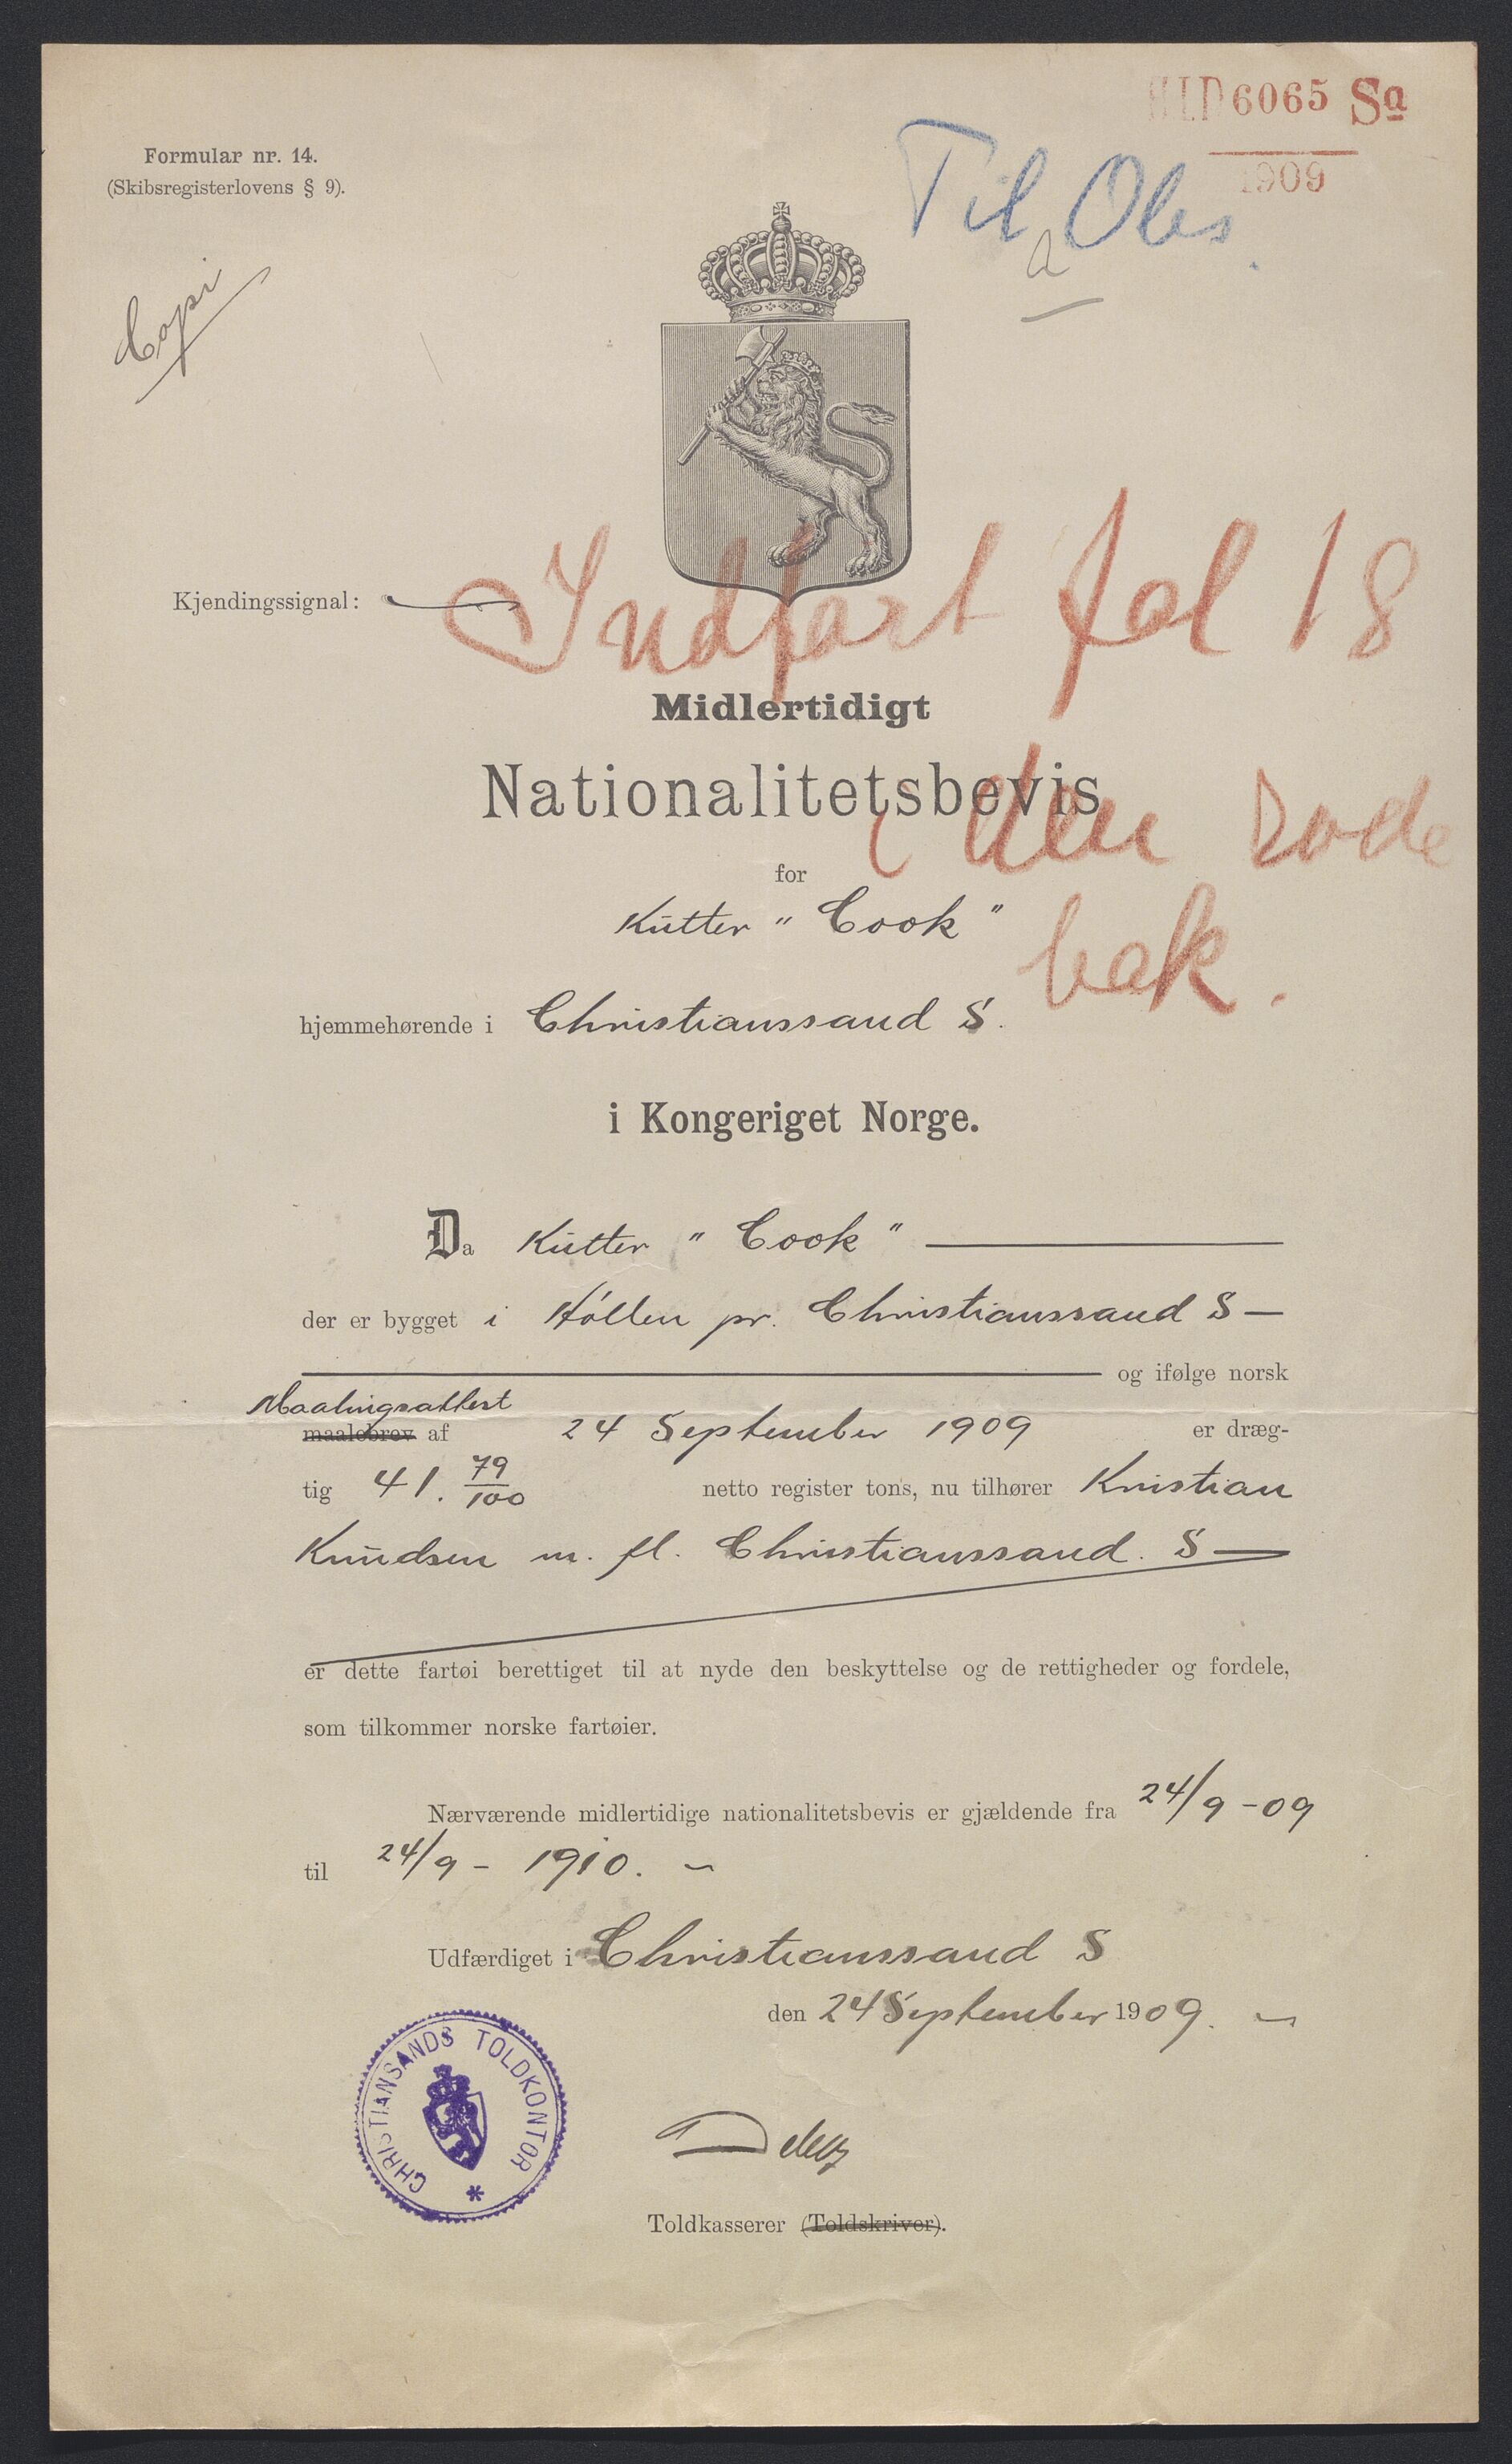 HID 6065 Sa
1909
Formular nr. 14.
(Skibsregisterlovens § 9).
Til Obs.
a
Copi
Kjendingssignal:
Indført fol 18
Midlertidigt
Nationalitetsbevis
i den røde
for
Kutter "Cook"
bok.
hjemmehørende i Christianssand S.
i Kongeriget Norge.
Da Kutter "Cook"
der er bygget i Hóllen pr. Christianssand S —
og ifølge norsk
Maalingsattest
maalebrev af 24 September 1909 er dræg-
tig 41. 79/100 netto register tons, nu tilhører Kristian
Knudsen m. fl. Christianssand. S —
er dette fartøi berettiget til at nyde den beskyttelse og de rettigheder og fordele,
som tilkommer norske fartøier.
Nærværende midlertidige nationalitetsbevis er gjældende fra 24/9 - 09
til 24/9 - 1910. -
Udfærdiget i Christianssand S
den 24 September 1909. -
CHRISTIANSANDS TOLDKONTOR *
Toldkasserer (Toldskriver).